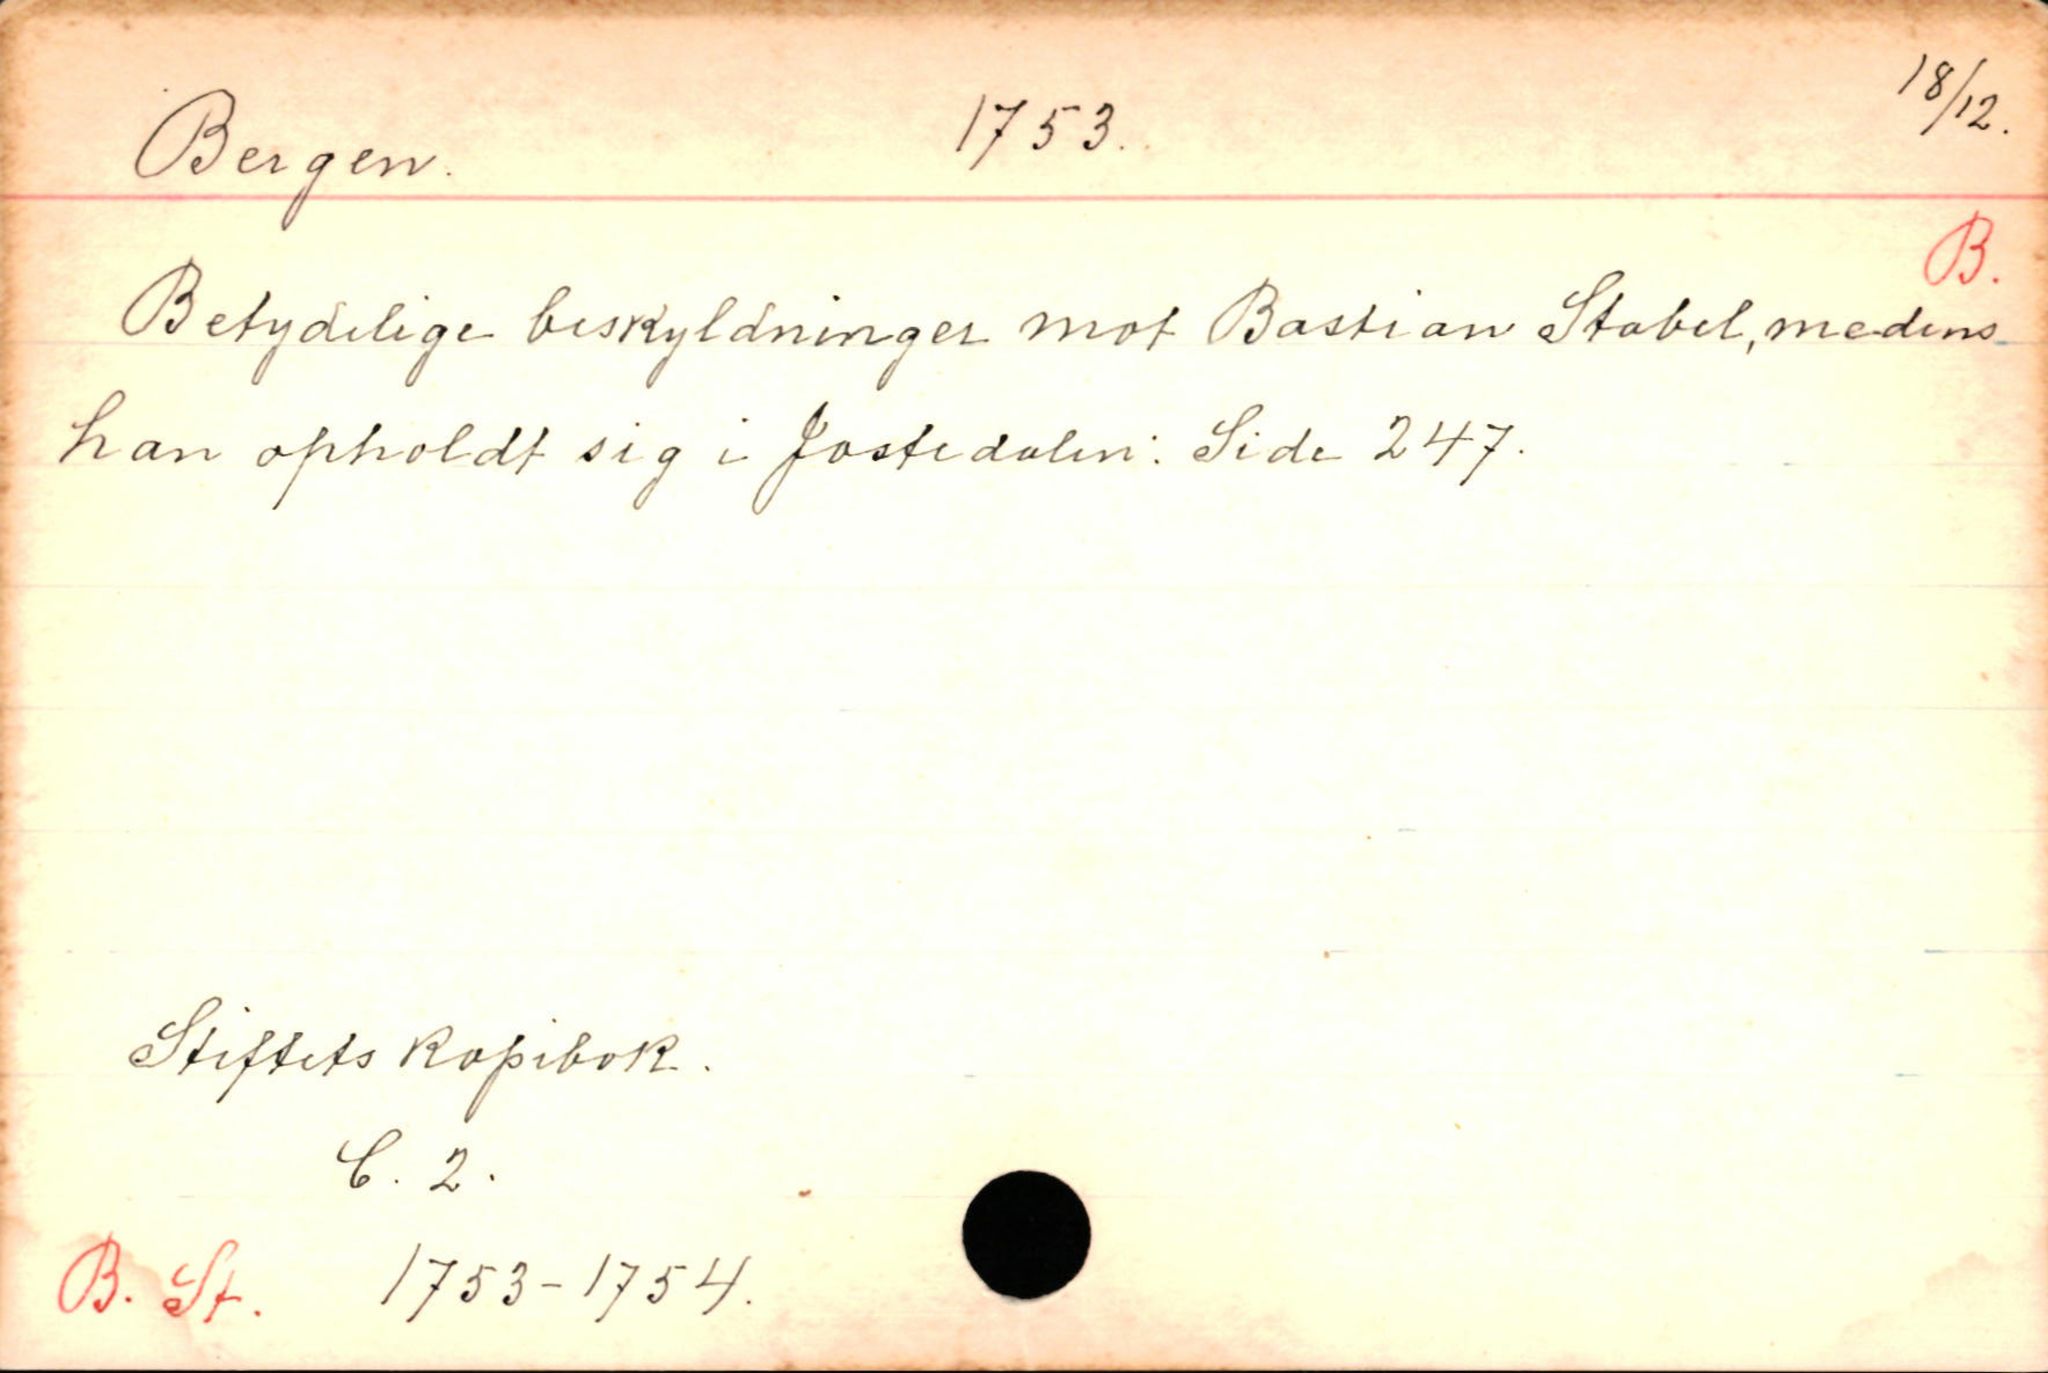 Bergen. 1753. 18/12.
B.
Betydelige beskyldninger mot Bastian Stabel, medens
han opholdt sig i Jostedalen: Side 247.
Stiftets kopibok.
C. 2.
B. St. 1753-1754.